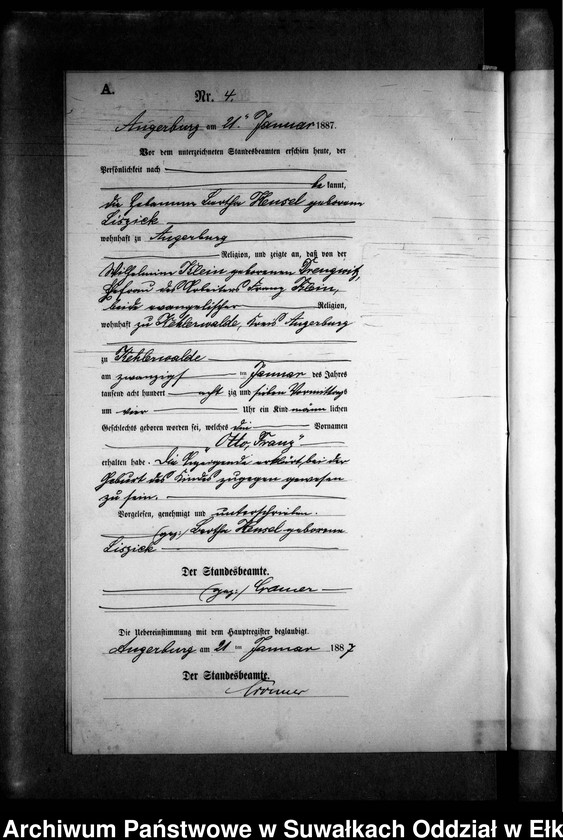 A.
Nr. 4.
Angerburg am 21ten Januar 1887.
Vor dem unterzeichneten Standesbeamten erschien heute, der
Persönlichkeit nach
be kannt,
die Hebamme Bertha Hensel geborene
Liszick
wohnhaft zu Angerburg
Religion, und zeigte an, daß von der
Wilhelmine Klein geborenen
Ehefrau des Arbeiters Franz Klein,
beide evangelischer Religion,
wohnhaft zu Kehlerwalde, Kreis Angerburg
zu Kehlerwalde
am zwanzigsten Januar des Jahres
tausend acht hundert acht zig und sieben Vormittags
um vier Uhr ein Kind männ lichen
Geschlechts geboren worden sei, welches die Vornamen
"Otto, Franz"
erhalten habe. Die Anzeigende erklärt, bei der
Geburt des Kindes zugegen gewesen
zu sein.
Vorgelesen, genehmigt und unterschrieben.
(gez:) Bertha Hensel geborene
Liszick
Der Standesbeamte.
(gez:) Cramer
Die Uebereinstimmung mit dem Hauptregister beglaubigt.
Angerburg am 21 ten Januar 1887
Der Standesbeamte.
Cramer
Archiwum Państwowe w Suwałkach Oddział w Ełk